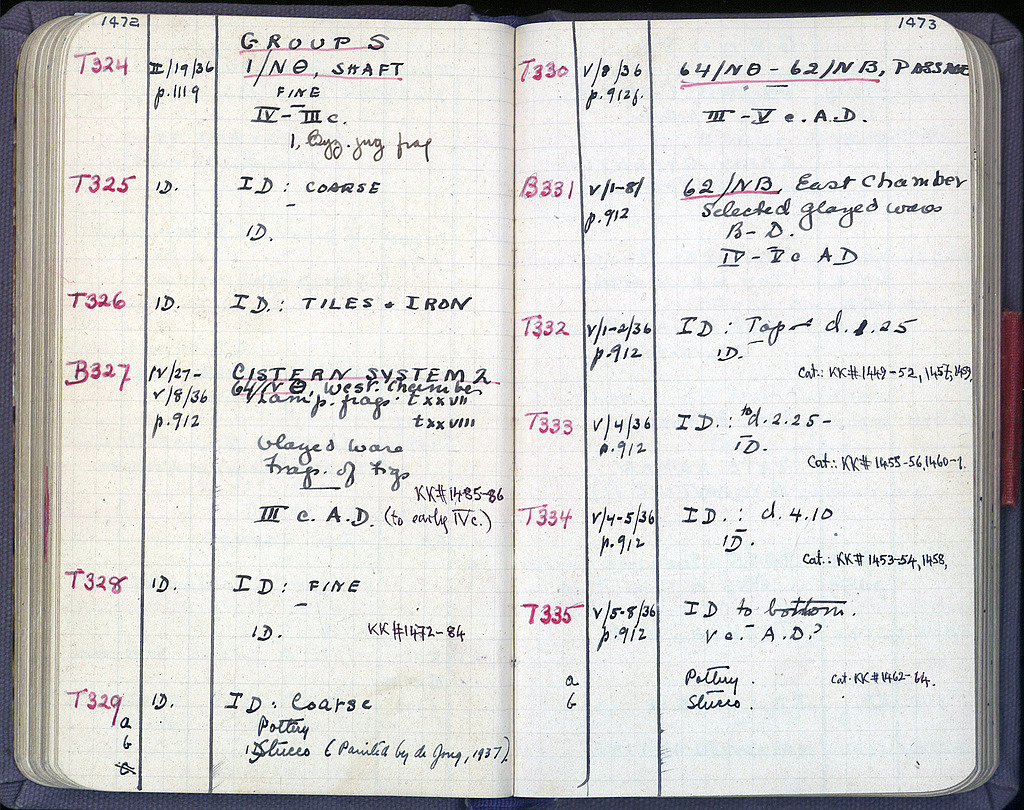 1472
GROUPS
T324 II/19/36 1/NΘ, SHAFT
p.1119 FINE
IV-III c.
1, Byz. jug frag
T325 ID. ID: COARSE
ID.
T326 ID. ID.: TILES + IRON
B327 IV/27- CISTERN SYSTEM 2
V/8/36 64/NΘ, West. Chamber
Lamp. frags. t xxvii
p.912 t xxviii
Glazed ware
Frags. of Figs
KK#1485-86
III c. A.D. (to early IVc.)
T328 ID. ID: FINE
ID. KK#1472-84
T329 ID. ID: Coarse
a Pottery
b Stucco (Painted by de Jong, 1937).
c
1473
T330 V/8/36 64/NΘ - 62/NB, PASSAGE
p.912f.
III - V c. A.D.
B331 V/1-8/ 62/NB, East Chamber
p.912 Selected glazed wares
B-D.
IV - V c AD
T332 V/1-2/36 ID: Top d.1.25
p.912 ID.
Cat.: KK#1449-52, 1457, 1459
T333 V/4/36 ID.: to d.2.25-
p.912 ID.
Cat.: KK#1455-56, 1460-1.
T334 V/4-5/36 ID.: d.4.10
p.912 ID.
Cat.: KK#1453-54, 1458,
T335 V/5-8/36 ID to bottom.
p.912 V c. A.D.?
a Pottery. Cat. KK#1462-64.
b Stucco.